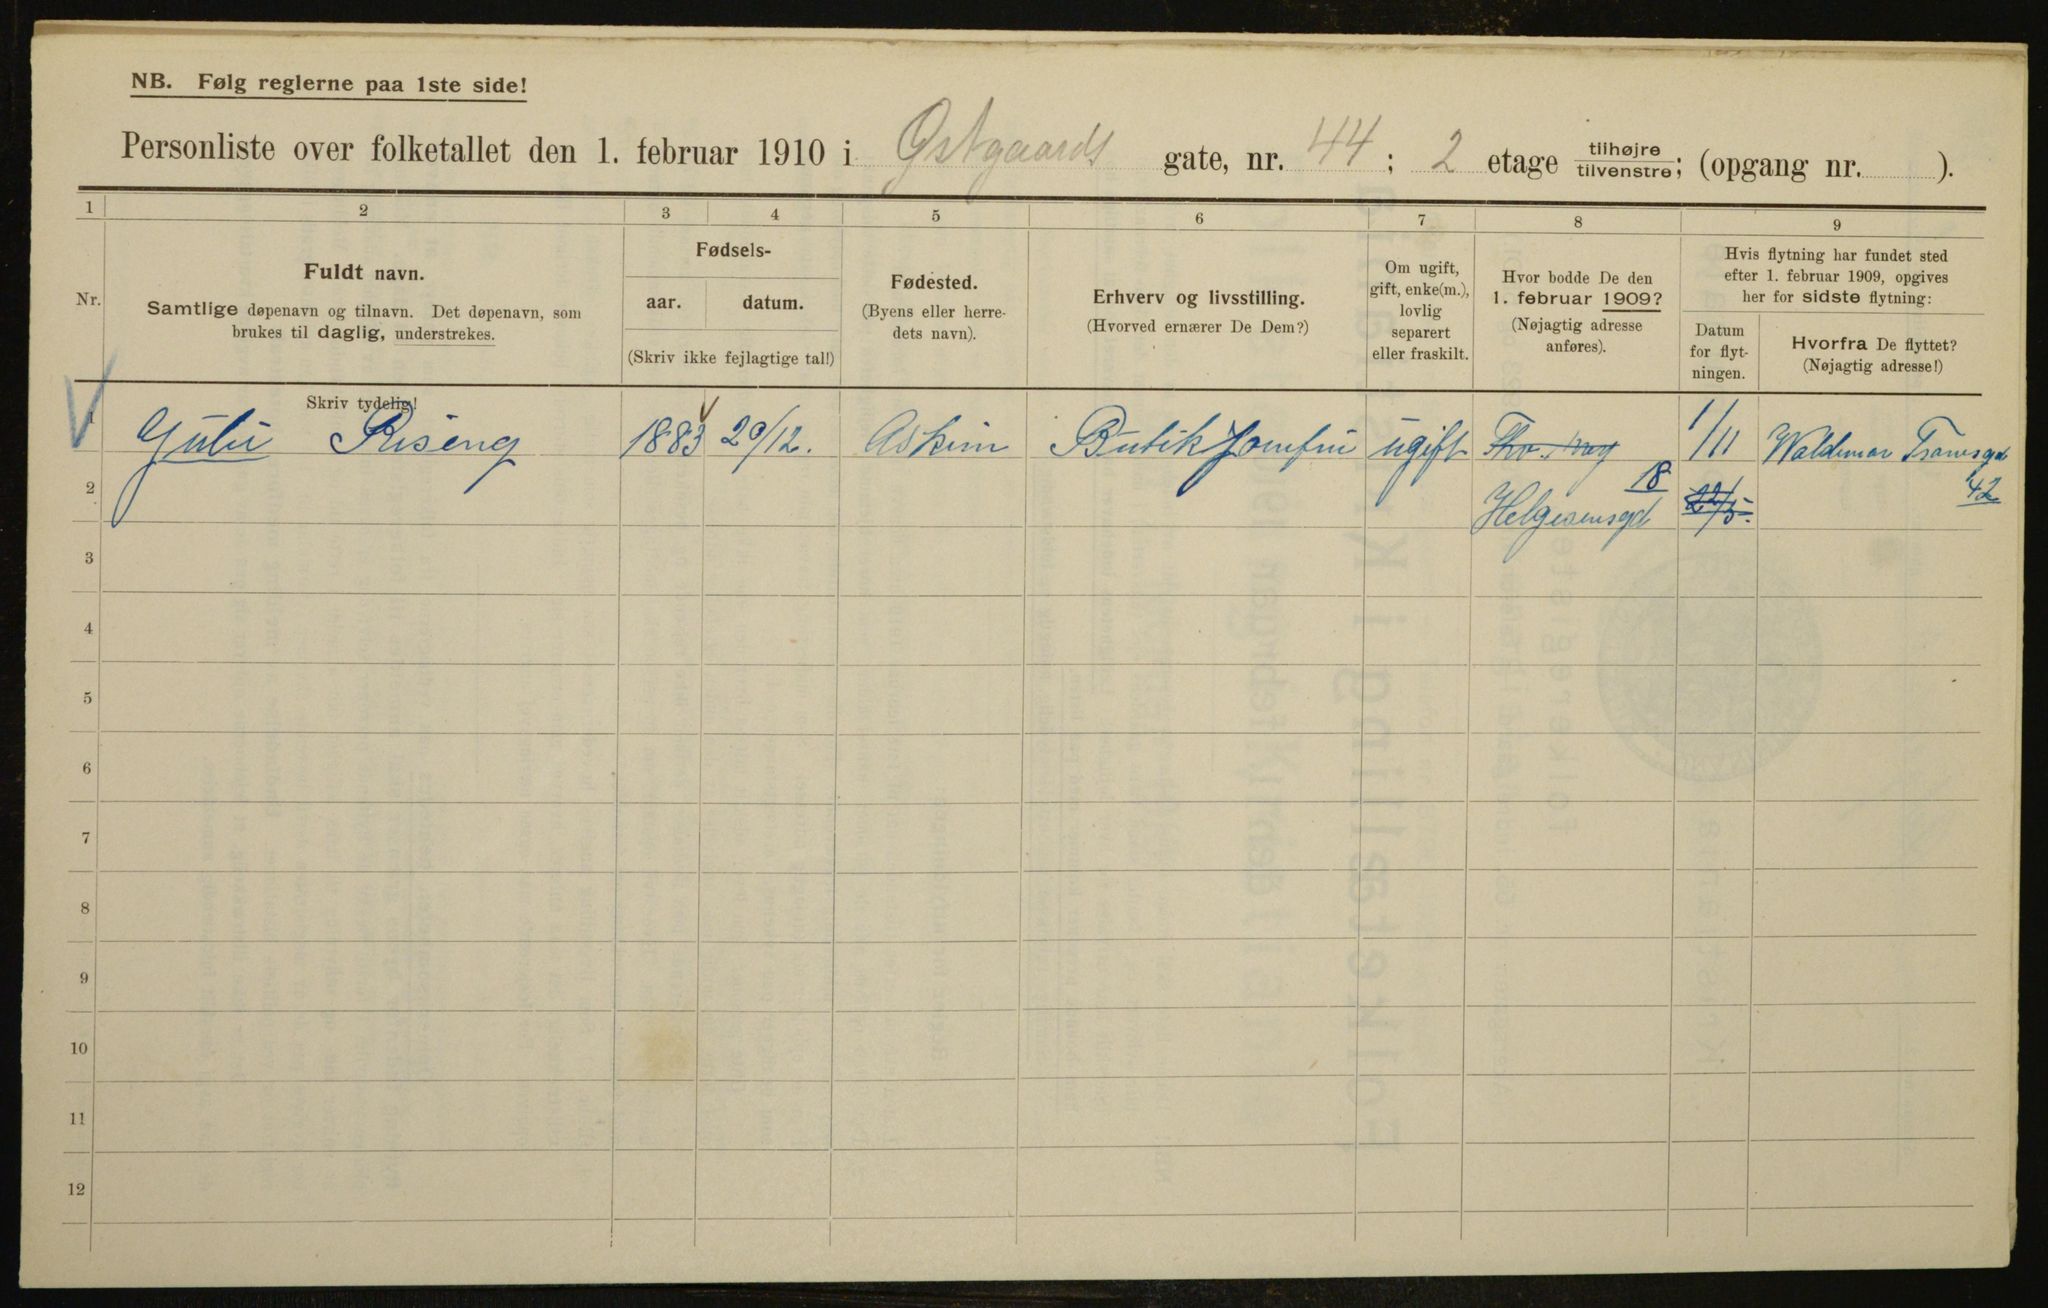 NB. Følg reglerne paa 1ste side!
Personliste over folketallet den 1. februar 1910 i Østgaards gate, nr. 44; 2 etage tilhøjre/tilvenstre; (opgang nr. ).
1 2 3 4 5 6 7 8 9
Nr.
Fuldt navn.
Samtlige døpenavn og tilnavn. Det døpenavn, som
brukes til daglig, understrekes.
Skriv tydelig!
Fødsels-
aar. datum.
(Skriv ikke fejlagtige tal!)
Fødested.
(Byens eller herre-
dets navn).
Erhverv og livsstilling.
(Hvorved ernærer De Dem?)
Om ugift,
gift, enke(m.),
lovlig
separert
eller fraskilt.
Hvor bodde De den
1. februar 1909?
(Nøjagtig adresse
anføres).
Hvis flytning har fundet sted
efter 1. februar 1909, opgives
her for sidste flytning:
Datum
for flyt-
ningen.
Hvorfra De flyttet?
(Nøjagtig adresse!)
1 Riseng 1883 29/12. Askim Butikjomfru ugift 1/11 Waldemar Tranesgd
2 Helgesensgd 18 22/5. 42
3
4
5
6
7
8
9
10
11
12